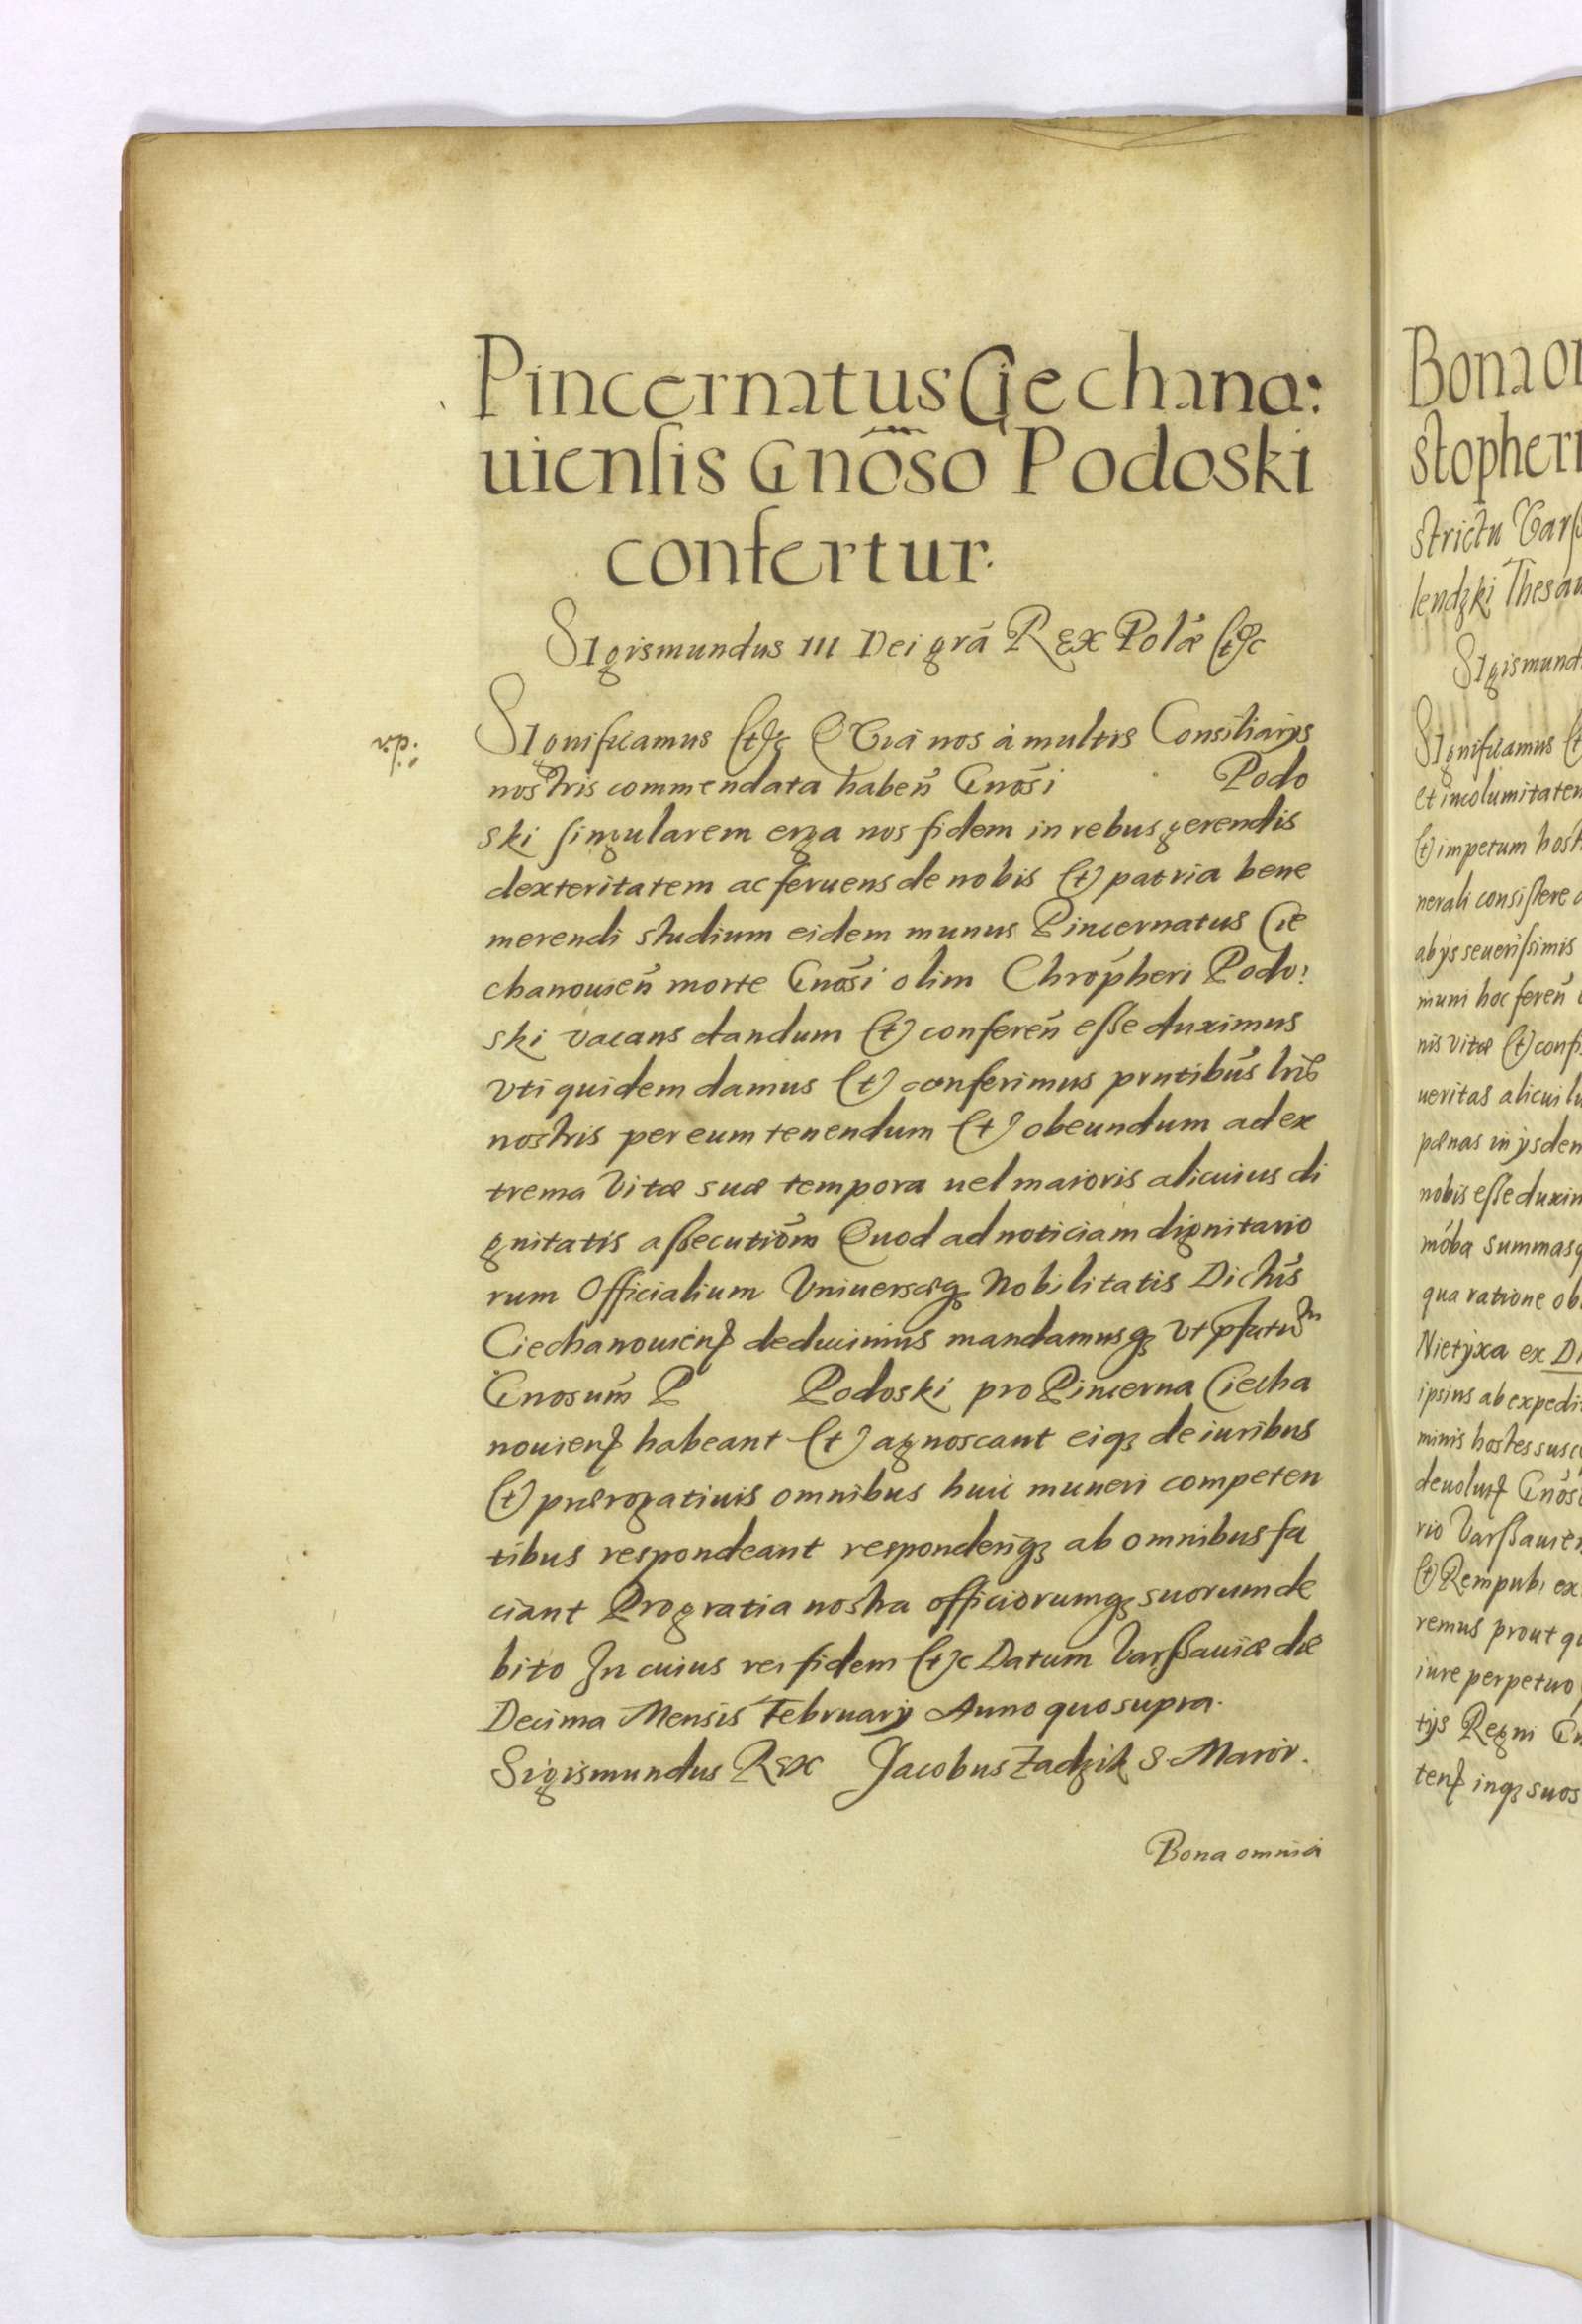 Pincernatus Ciechano:
uiensis Gnõso Podoski
confertur.
Sigismundus III Dei grã Rex Polæ &c
r.p.
Significamus &c Quia nos à multis Consiliarijs
nostris commendata habeñ Gnosi Podo
ski singularem erga nos fidem in rebus gerendis
dexteritatem ac feruens de nobis & patria bene
merendi studium eidem munus Pincernatus Cie
chanouieñ morte Gnosi olim Chropheri Podo:
ski vacans dandum & confereñ esse duximus
vti quidem damus & conferimus prntibus lrib
nostris per eum tenendum & obeundum ad ex
trema vitæ suæ tempora uel maioris alicuius di
gnitatis assecutiom Quod ad noticiam dignitario
rum Officialium Vniuersæq₃ Nobilitatis Dictus
Ciechanouien deducimus mandamusq₃ vt pfatum
Gnosum P Podoski pro Pincerna Ciecha
nouien habeant & agnoscant eiq₃ de iuribus
& prærogatiuis omnibus huic muneri competen
tibus respondeant responderiq₃ ab omnibus fa
ciant Pro gratia nostra officiorumq₃ suorum de
bito In cuius rei fidem &c Datum Varssauiæ die
Decima Mensis February Anno quo supra.
Sigismundus Rex Jacobus Zadzik S. Maior.
Bona omnia
Bona
stopher
strictu Vars
lendzki Thesau
Sigismund
Significamus
et incolumitatem
& impetum host
nerali consistere
ab ijs seuerissimis
muni hoc fereñ
nis vitæ & conf
ueritas alicui
pænas in ijsdem
nobis esse duxim
moba summasq
qua ratione ob
Nietyxa ex
ipsius ab expedi
minis hostes susc
deuolut Gnos
rio Varssauien
& Rempub: ex
remus prout qu
iure perpetuo
tijs Regni
ten inq₃ suos